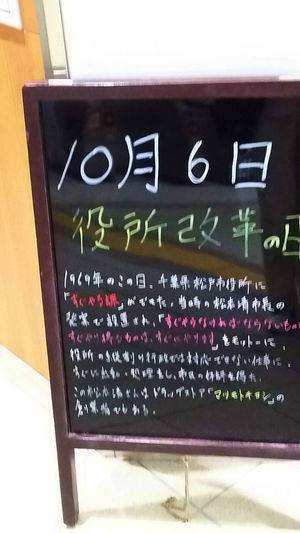 10月6日
役所改革の日
1969年のこの日、千葉県松戸市役所に
「すぐやる課」ができた。当時の松本清市長の
発案で設置され、「すぐやらなければならないもの
すぐやり得るものは、すぐにやります」をモットーに、
役所の縦割り行政では対応できない仕事に
すぐに出動、処理をし、市民の好評を得た。
この松本清さんはドラッグストア「マツモトキヨシ」の
創業者でもある。